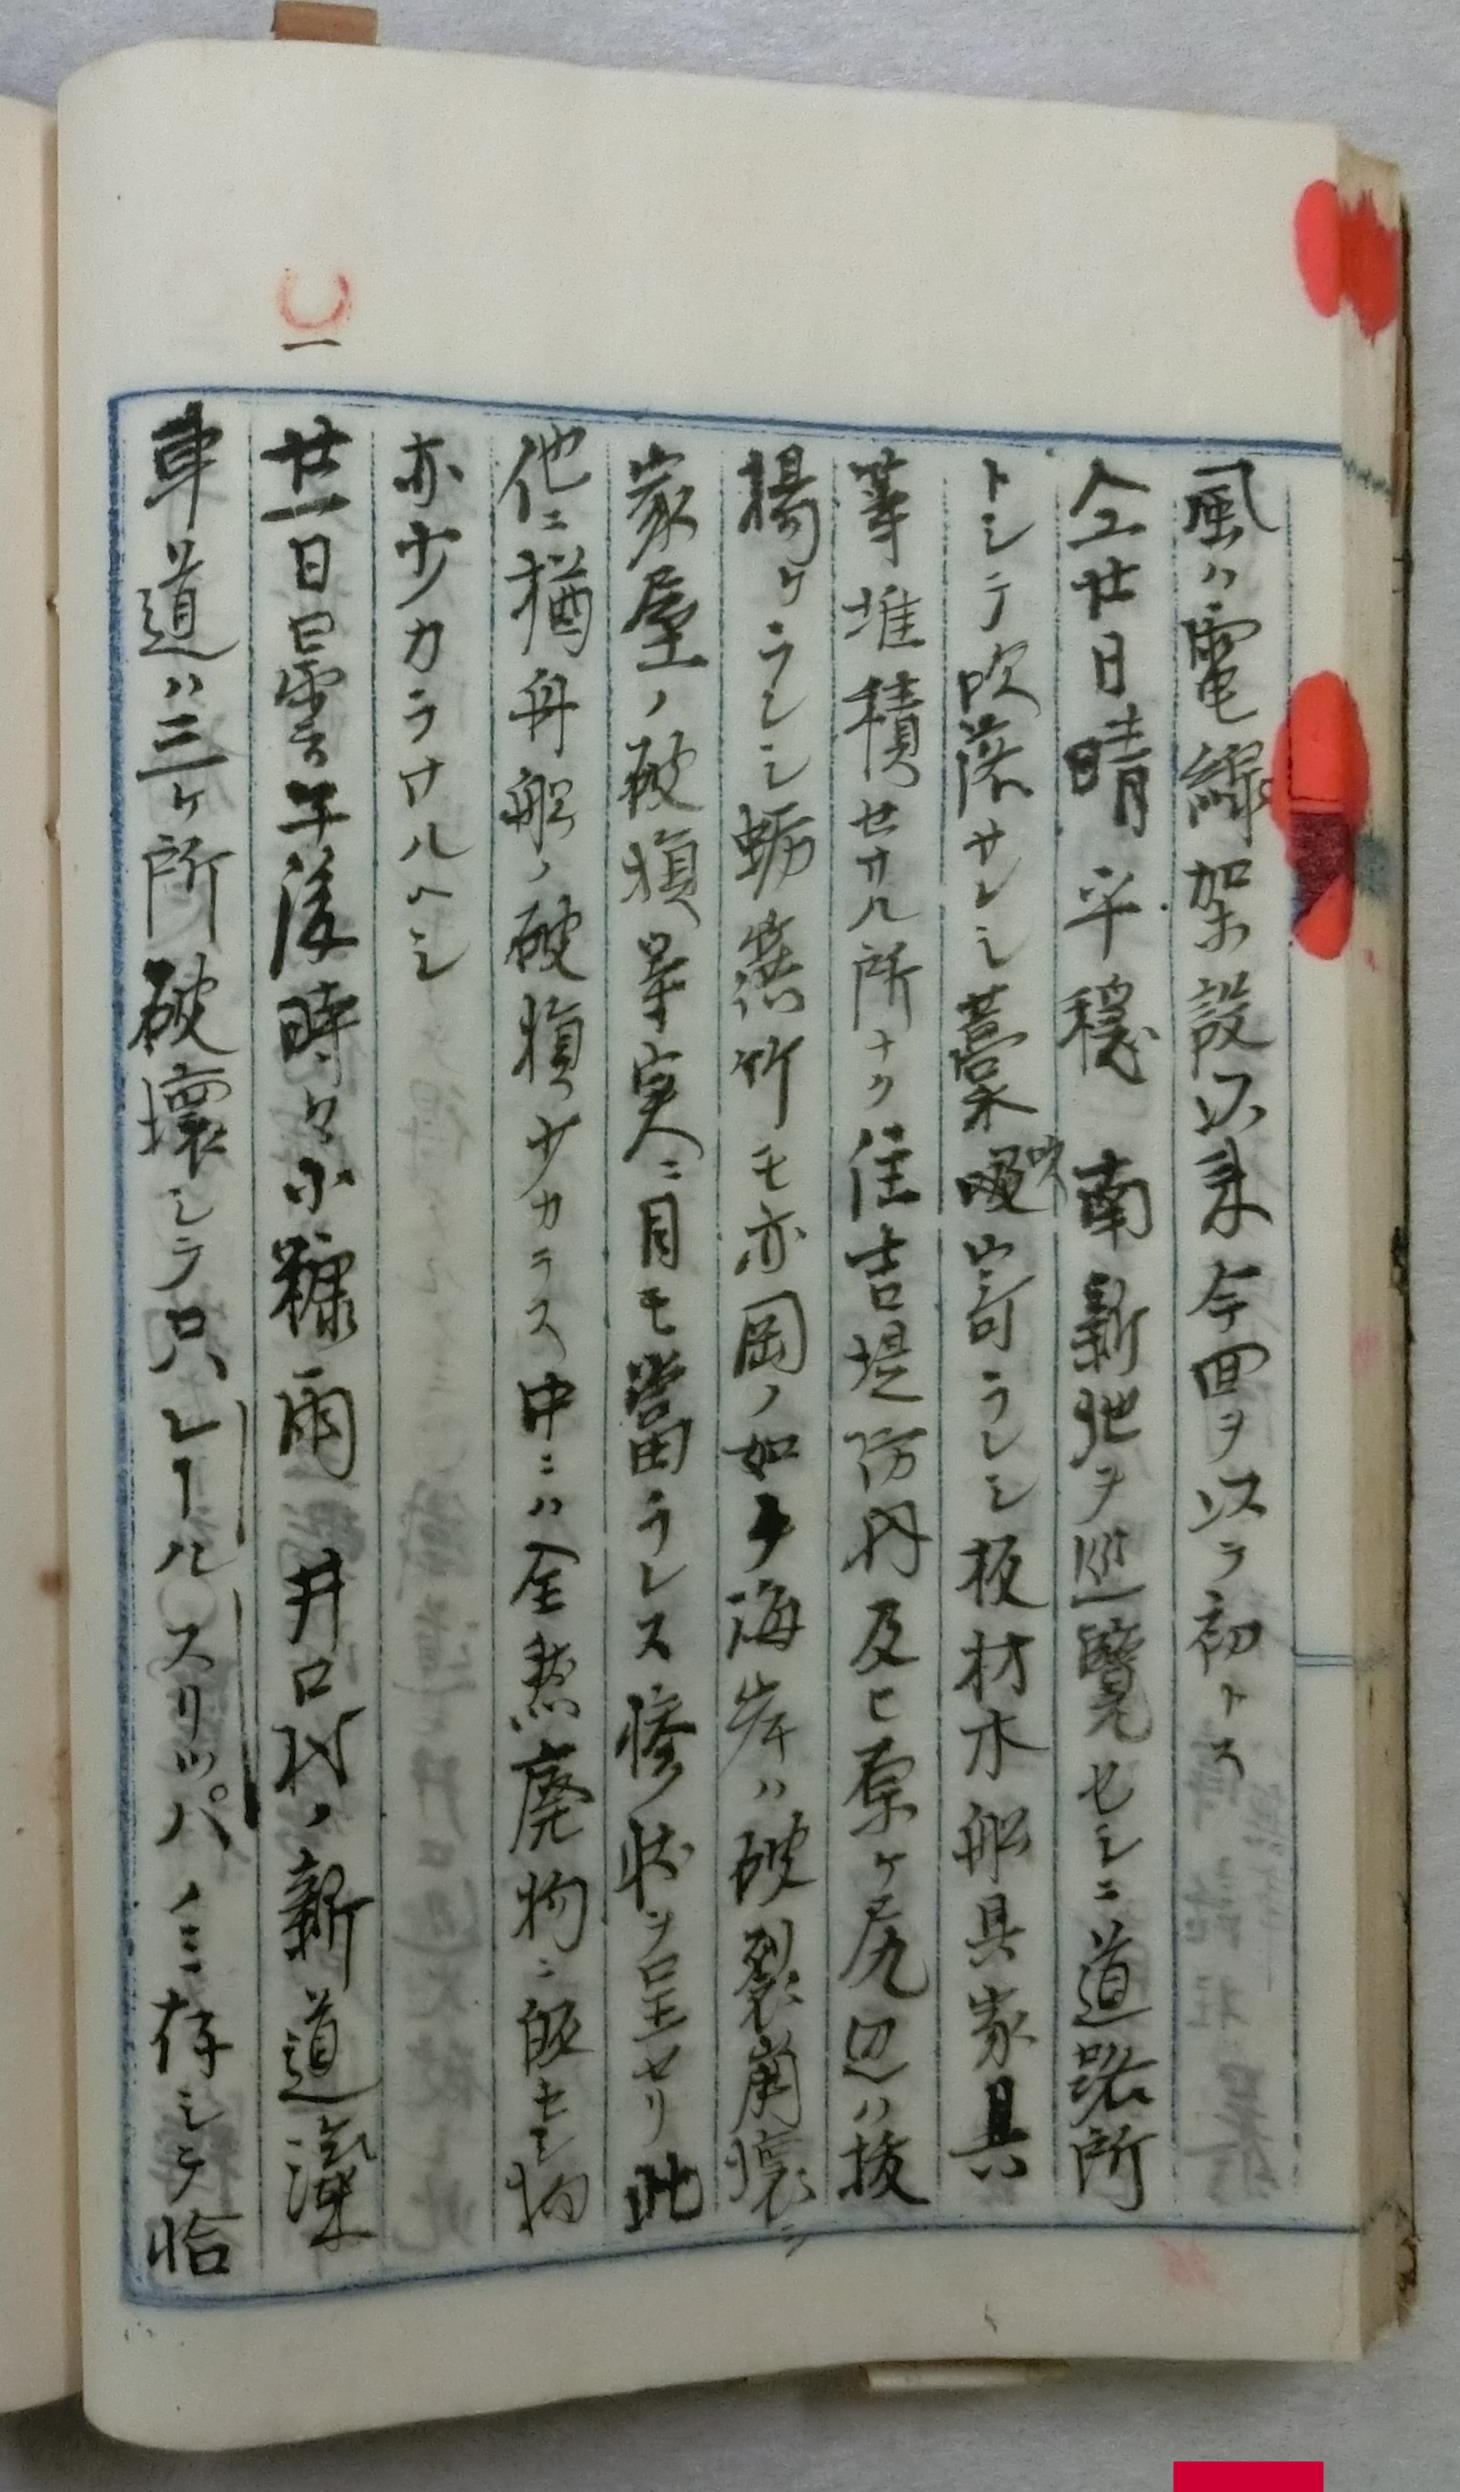 風ハ電線架設以来今回ヲ以テ初トス
仝廿日晴平穏　南新地ヲ巡覧セシニ道路所
トシテ吹落サレシ藁吹寄ラレシ板材木船具家具
等堆積セサル所ナク住吉堤防内及ヒ原ヶ尻辺ハ抜
揚ケラレシ蛎簇竹モ亦岡ノ如ク海岸ハ破裂崩壊シ
家屋ノ破損等実ニ目モ當ラレス惨状ヲ呈セリ此
他ニ猶舟船ノ破損少カラス中ニハ全然廃物ニ皈セシ物
亦少カラサルヘシ
一
廿一日曇午後時々小糠雨　井口村ノ新道滊
車道ハ三ヶ所破壊シテ只レールスリッパノミ存シテ恰